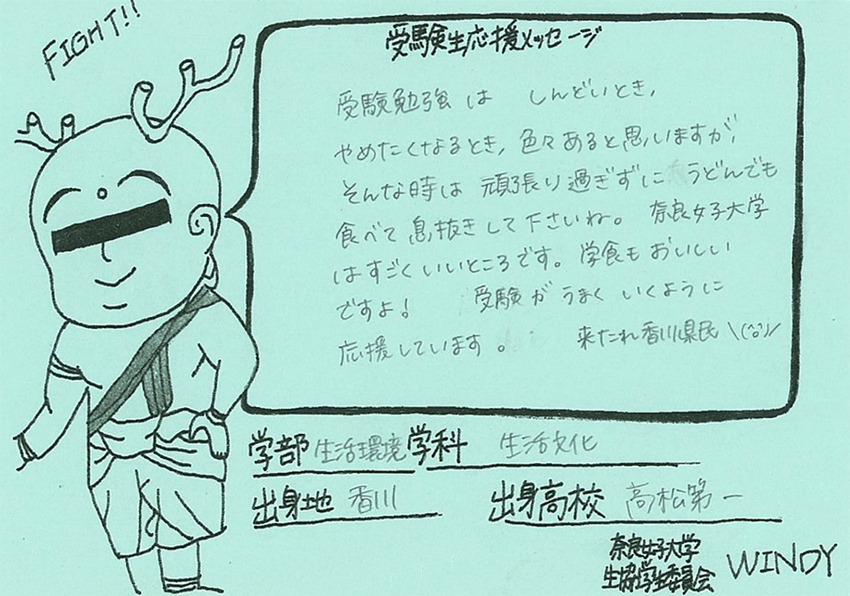 FIGHT!!
受験生応援メッセージ
受験勉強は しんどいとき,
やめたくなるとき, 色々あると思いますが,
そんな時は 頑張り過ぎずに うどんでも
食べて 息抜きして下さいね。 奈良女子大学
はすごくいいところです。学食も おいしい
ですよ! 受験が うまく いくように
応援しています。 来たれ香川県民 \(^o^)/
学部 生活環境 学科 生活文化
出身地 香川 出身高校 高松第一
奈良女子大学
生協学生委員会 WINDY